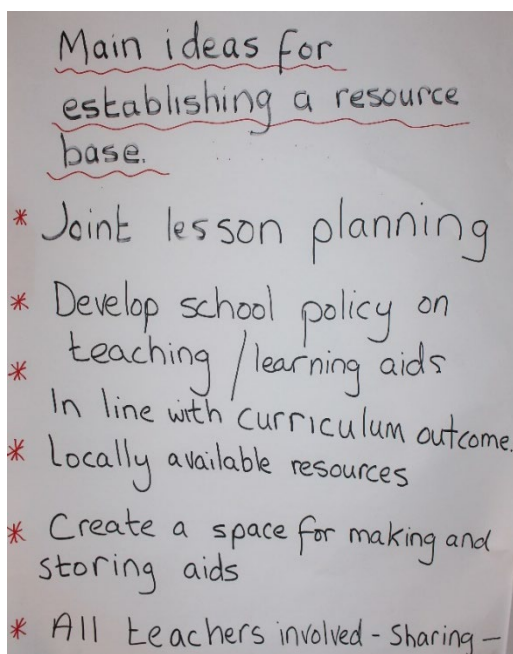 Main ideas for
establishing a resource
base.
* Joint lesson planning
* Develop school policy on
teaching/learning aids
* In line with curriculum outcome.
* Locally available resources
* Create a space for making and
storing aids
* All teachers involved - Sharing -